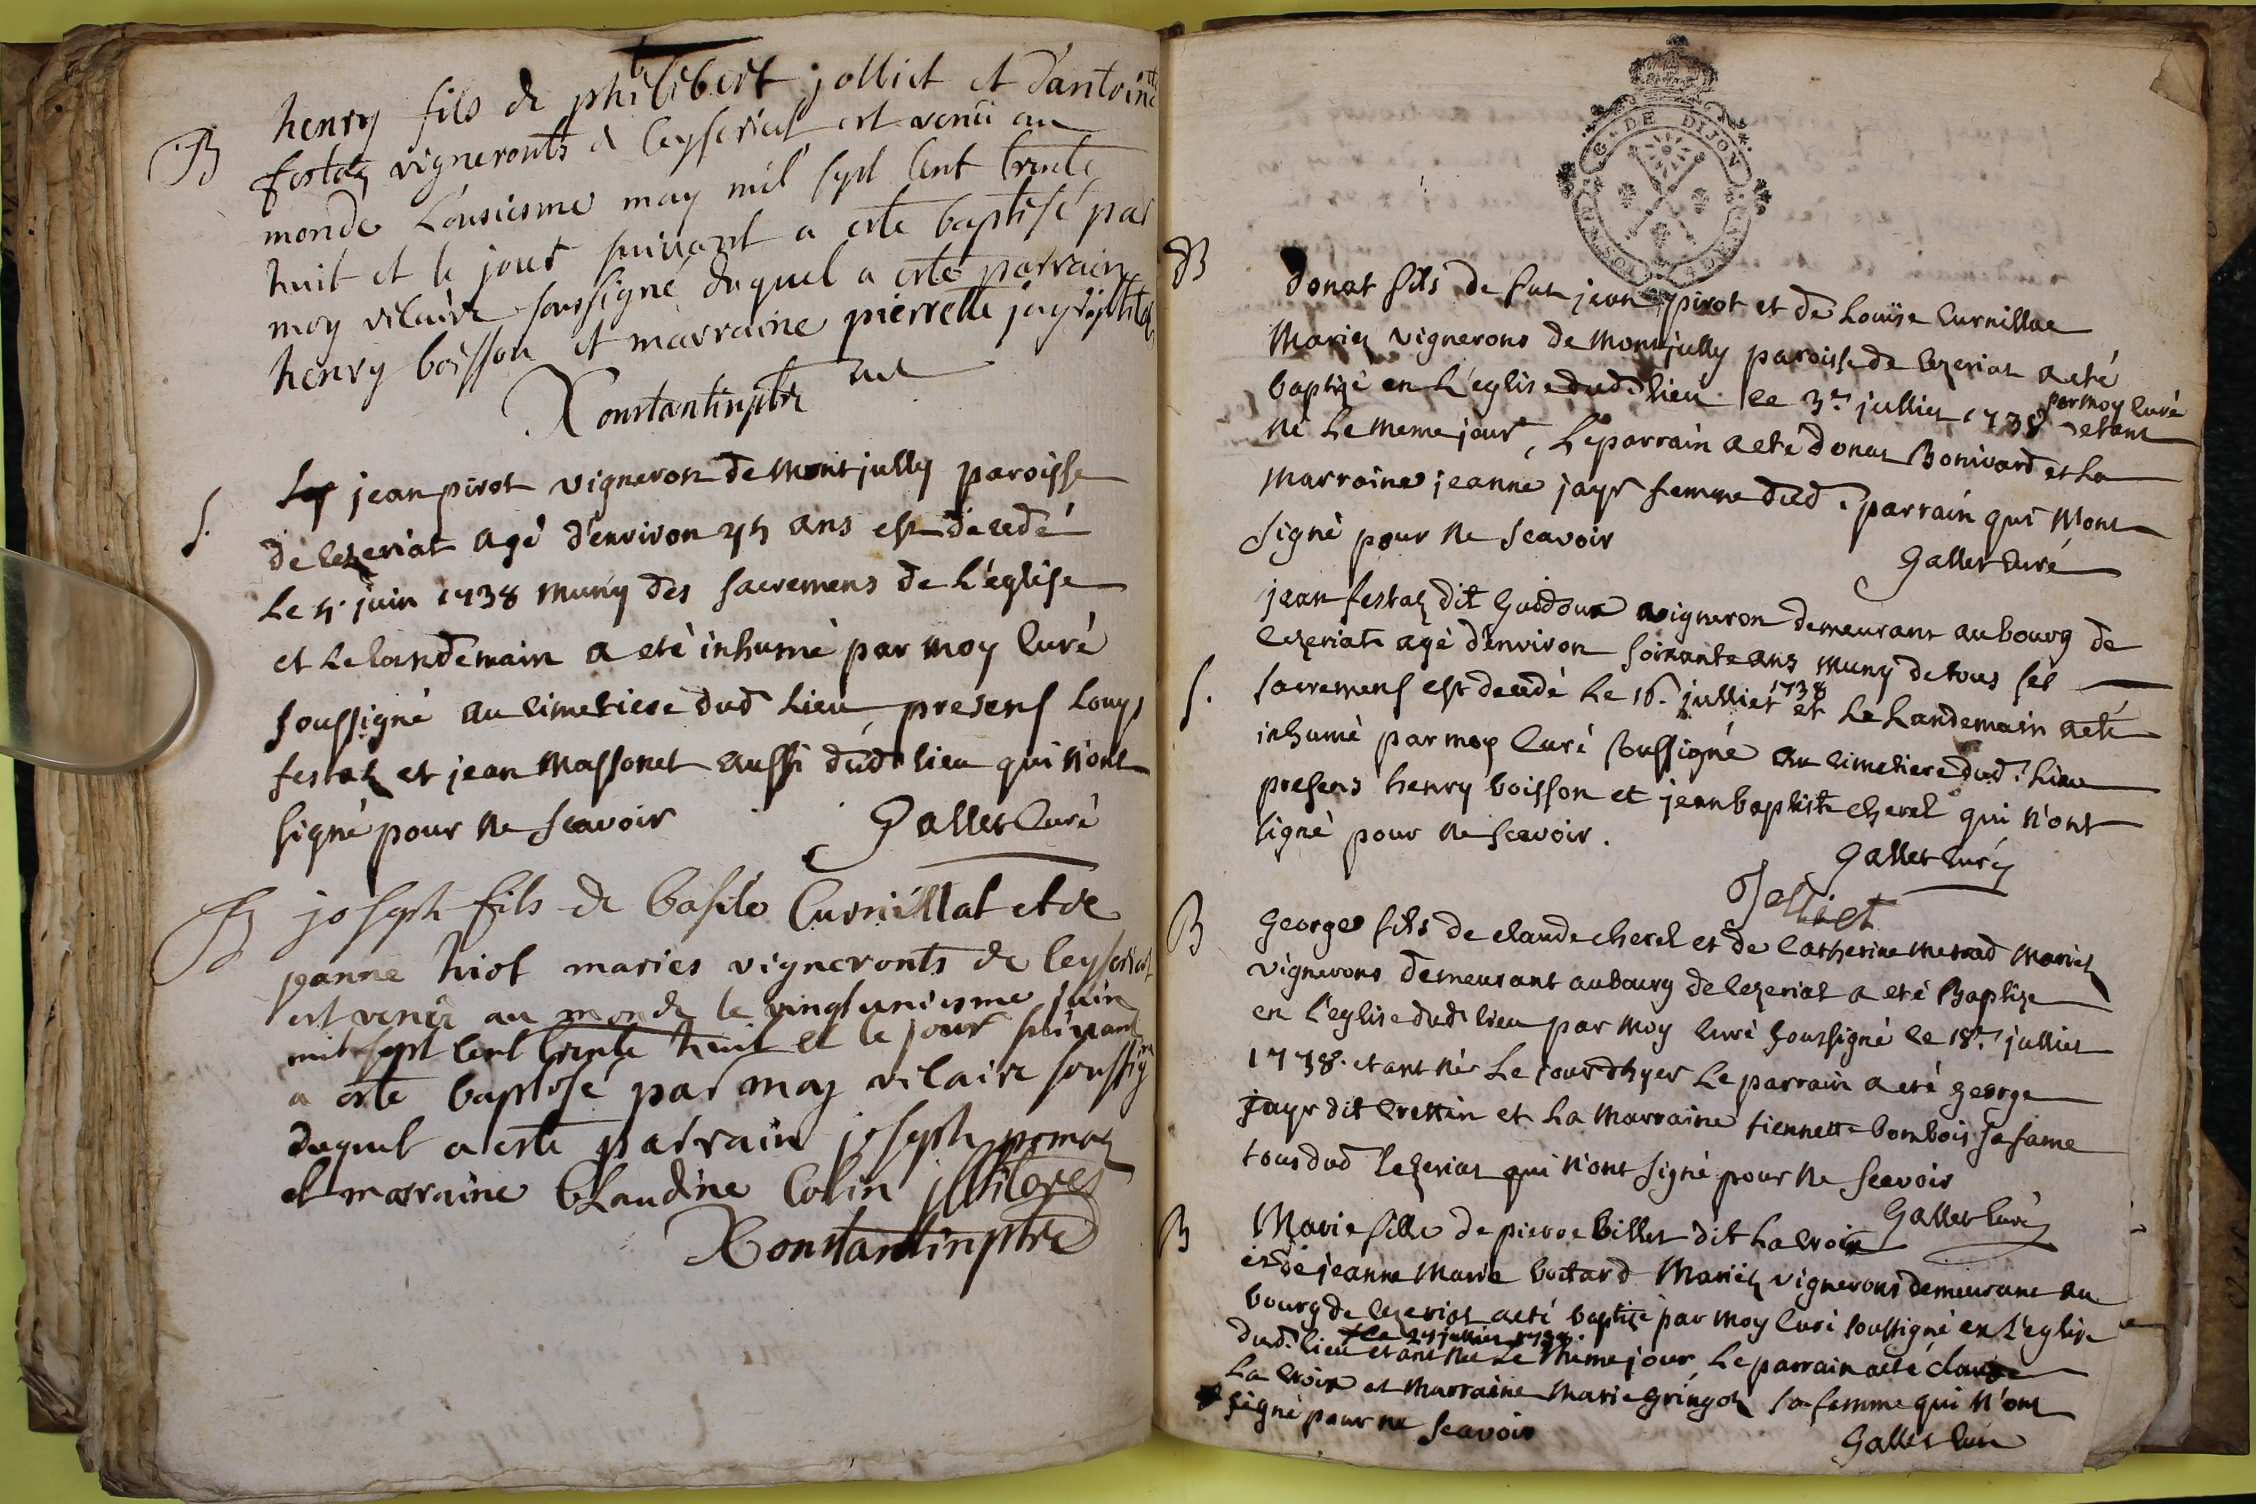 B
henry fils de philibert jolliet et d'antoinette
festaz vigneronts a leyseriat est venü au
monde l'onsiesme may mil sept cent trente
huit et le jour suivant a este baptisé par
moy vicaire soussigné duquel a este parrain
henry boisson et marraine pierrette jayr
Constantin ptre
S.
jean pirot vigneron de montjully paroisse
de lezeriat agé d'environ 45 ans est decedé
Le 5. juin 1738 muny des sacremens de L'église
et Le landemain a eté inhumé par moy Curé
soussigné au cimetiere dud Lieu presens Louys
festaz et jean Massonet aussi dud lieu qui n'ont
signé pour ne scavoir Gallet Curé
B
joseph fils de basile Curnillat et de
jeanne hiot maries vigneronts de leyseriat
est venu au monde le vingtuniesme juin
mil sept cent trente huit et le jour suivant
a este baptisé par moy vicaire soussigné
duquel a este parrain joseph pomaz
et marraine Claudine Colin illiteres
Constantin ptre
G. DE DIJON
B
Donat fils de fut jean pirot et de Louïse Curnillae
Mariez vignerons de Montjully paroisse de lezeriat a eté
baptizé en L'eglise dud lieu le 3e. julliet 1738 par moy Curé etant
né Le meme jour, Le parrain a eté donat Bonivard et La
marraine jeanne jayr femme dud. parrain qui n'ont
signé pour ne scavoir
Gallet Curé
jean festaz dit Guidoux vigneron demeurant au bourg de
lezeriat agé d'environ soixante ans muny de tous ses
S.
sacremens est decedé Le 16. julliet 1738 et Le Landemain a eté
inhumé par moy Curé soussigné au cimetiere dud. Lieu
presens henry boisson et jean baptiste cherel qui n'ont
signé pour ne scavoir.
Gallet Curé
Jolliet
B
George fils de claude cherel et de Catherine Meraud Mariez
vignerons demeurant au bourg de lezeriat a eté Baptize
en l'eglise dud. lieu par moy Curé soussigné le 18e. julliet
1738. etant né Le jour d'hyer Le parrain a eté george
jayr dit Crettin et La Marraine tiennette bombois sa fame
tous dud lezeriat qui n'ont signé pour ne scavoir
Gallet Curé
B
Marie fille de pierre billet dit La croix
et de jeanne Marie boitard Mariez vignerons demeurant au
bourg de lezeriat a eté baptizé par moy Curé soussigné en L'eglise
dud. lieu le 24 julliet 1738. etant née Le meme jour Le parrain a eté claude
La croix et Marraine Marie gringoz sa femme qui n'ont
signé pour ne scavoir
Gallet Curé